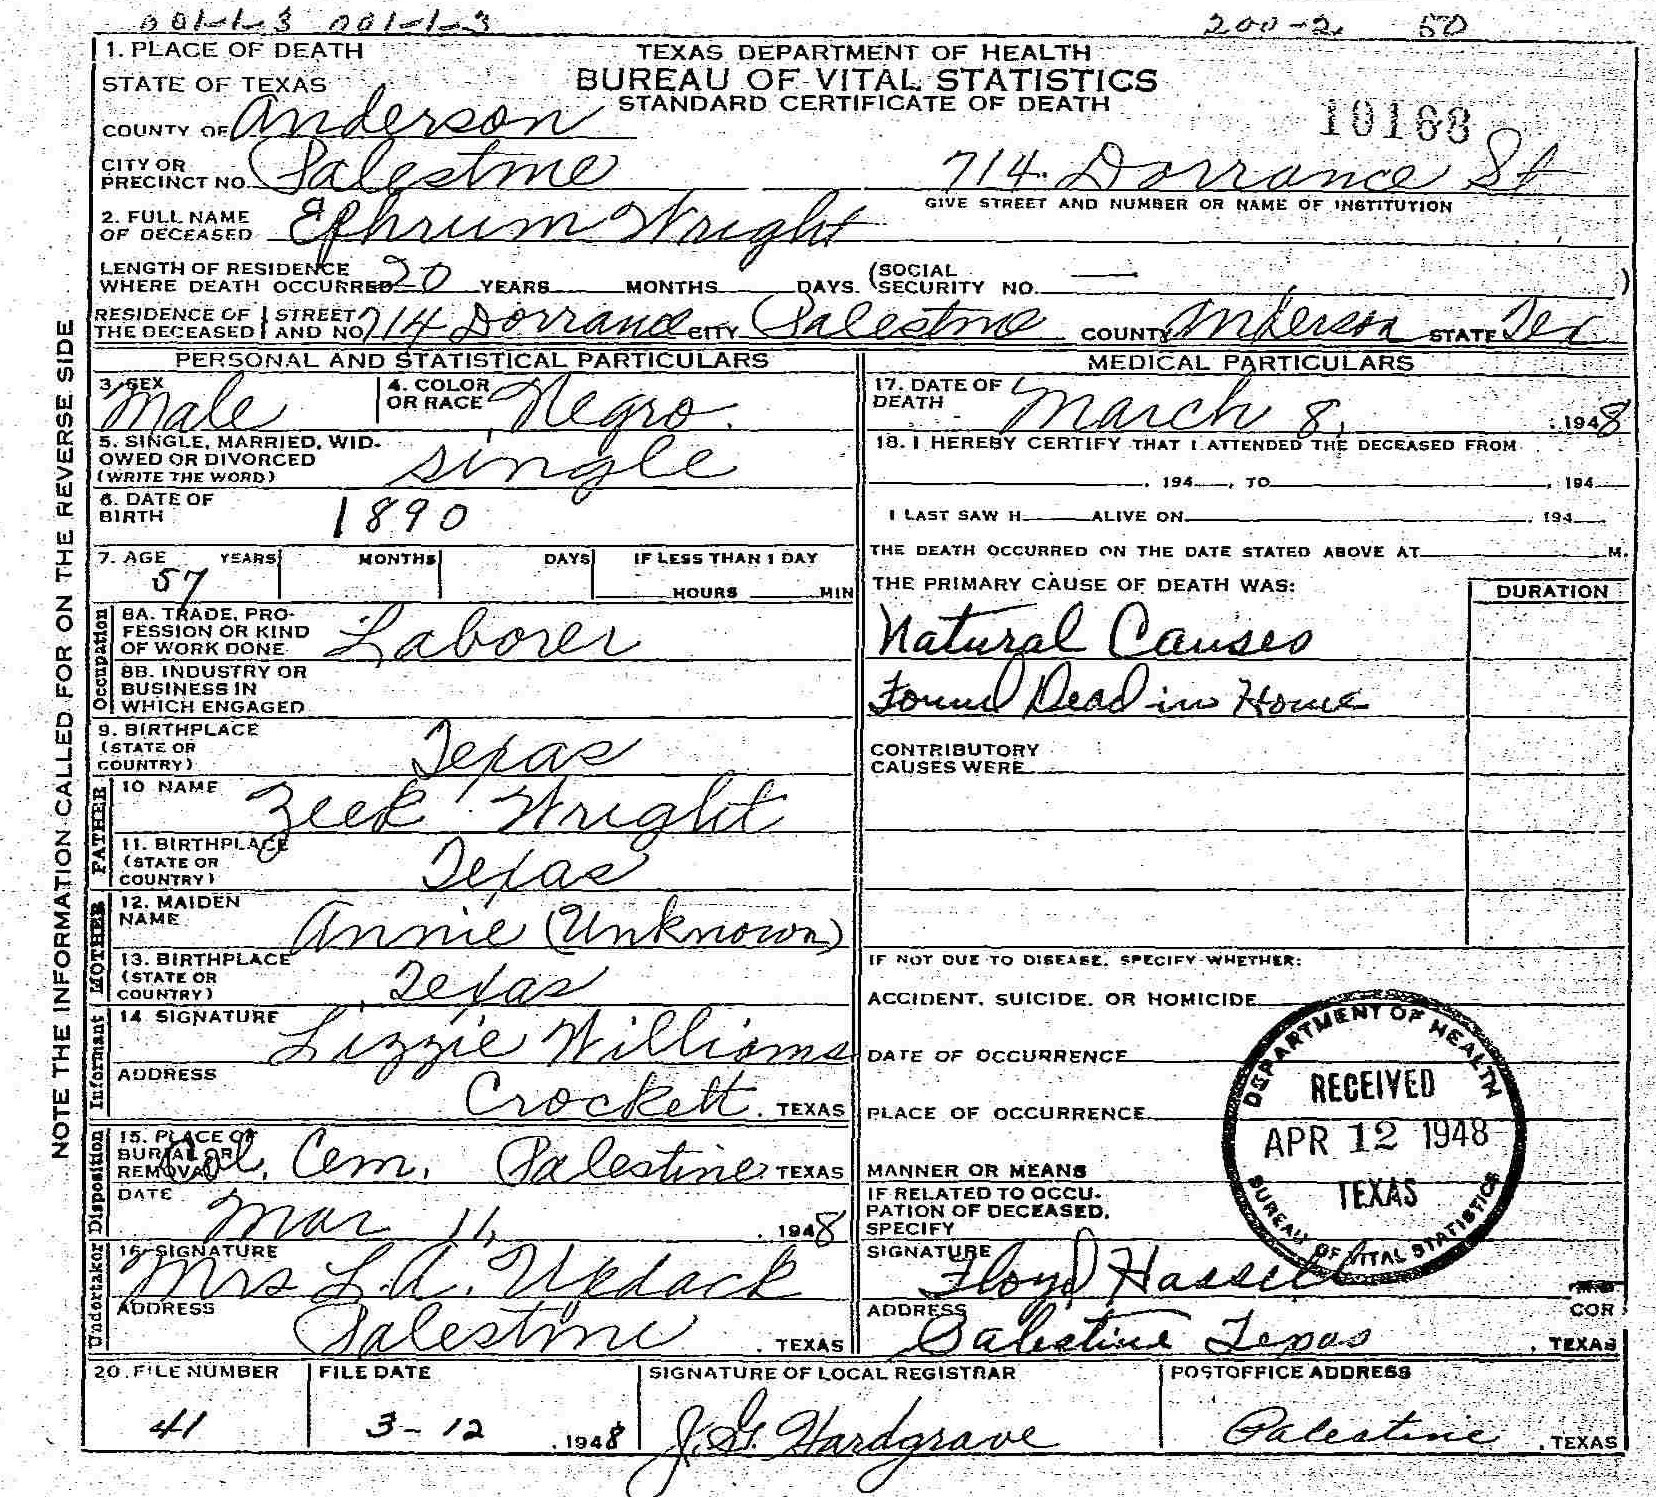 001-1-3 001-1-3 200-2 50
1. PLACE OF DEATH
STATE OF TEXAS
TEXAS DEPARTMENT OF HEALTH
BUREAU OF VITAL STATISTICS
STANDARD CERTIFICATE OF DEATH
10168
COUNTY OF Anderson
CITY OR PRECINCT NO. Palestine 714 Dorrance St
GIVE STREET AND NUMBER OR NAME OF INSTITUTION
2. FULL NAME OF DECEASED Ephrium Wright
LENGTH OF RESIDENCE WHERE DEATH OCCURRED 20 YEARS MONTHS DAYS. (SOCIAL SECURITY NO. — )
RESIDENCE OF THE DECEASED STREET AND NO. 714 Dorrance CITY Palestine COUNTY Anderson STATE Tex
PERSONAL AND STATISTICAL PARTICULARS
3. SEX Male 4. COLOR OR RACE Negro.
5. SINGLE, MARRIED, WIDOWED OR DIVORCED (WRITE THE WORD) single
6. DATE OF BIRTH 1890
7. AGE YEARS MONTHS DAYS IF LESS THAN 1 DAY
57 HOURS MIN
Occupation
8A. TRADE, PROFESSION OR KIND OF WORK DONE Laborer
8B. INDUSTRY OR BUSINESS IN WHICH ENGAGED
9. BIRTHPLACE (STATE OR COUNTRY) Texas
FATHER
10 NAME Zeek Wright
11. BIRTHPLACE (STATE OR COUNTRY) Texas
MOTHER
12. MAIDEN NAME Annie (Unknown)
13. BIRTHPLACE (STATE OR COUNTRY) Texas
Informant
14 SIGNATURE Lizzie Williams
ADDRESS Crockett. TEXAS
Disposition
15. PLACE OF BURIAL OR REMOVAL Col. Cem. Palestine TEXAS
DATE Mar 11, 1948
Undertaker
16 SIGNATURE Mrs L.A.
ADDRESS Palestine . TEXAS
MEDICAL PARTICULARS
17. DATE OF DEATH March 8, 1948
18. I HEREBY CERTIFY THAT I ATTENDED THE DECEASED FROM
, 194 , TO , 194
I LAST SAW H ALIVE ON , 194
THE DEATH OCCURRED ON THE DATE STATED ABOVE AT M.
THE PRIMARY CAUSE OF DEATH WAS: DURATION
Natural Causes
Found Dead in Home
CONTRIBUTORY CAUSES WERE
IF NOT DUE TO DISEASE, SPECIFY WHETHER:
ACCIDENT, SUICIDE, OR HOMICIDE
DATE OF OCCURRENCE
PLACE OF OCCURRENCE
MANNER OR MEANS
IF RELATED TO OCCUPATION OF DECEASED, SPECIFY
DEPARTMENT OF HEALTH
RECEIVED
APR 12 1948
TEXAS
BUREAU OF VITAL STATISTICS
SIGNATURE Floyd Hassell
COR
ADDRESS Palestine Texas . TEXAS
20. FILE NUMBER FILE DATE SIGNATURE OF LOCAL REGISTRAR POSTOFFICE ADDRESS
41 3-12 . 1948 J. G. Hardgrave Palestine . TEXAS
NOTE THE INFORMATION CALLED FOR ON THE REVERSE SIDE